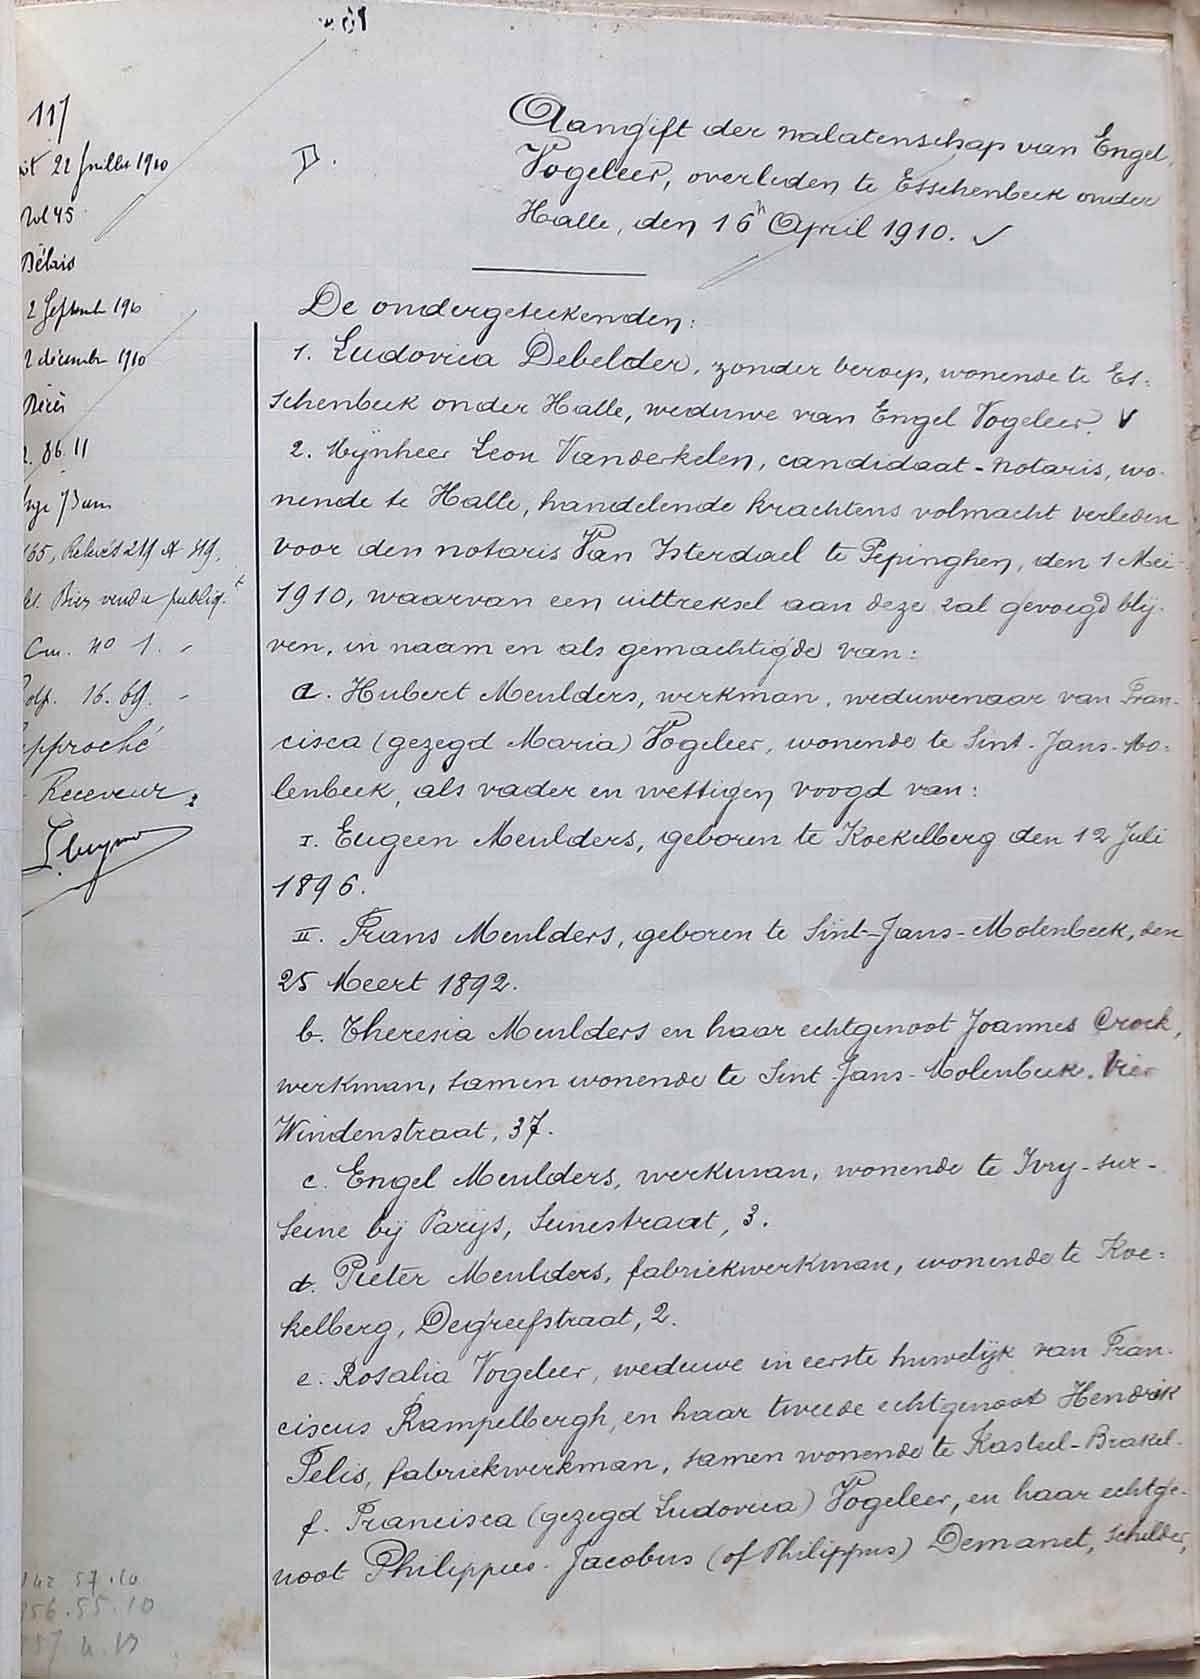 117
22 Juillet 1910
Vol 45
Délais
2 Septembre 1910
2 décembre 1910
86.11
165, Relevés 219 A 819.
Biens vendu publiq.t
Cm. no 1.
16.69.
approché
Receveur
D.
Aangift der nalatenschap van Engel
Vogeleer, overleden te Esschenbeek onder
Halle, den 16n April 1910.
De ondergeteekenden:
1. Ludovica Debelder, zonder beroep, wonende te Es=
schenbeek onder Halle, weduwe van Engel Vogeleer.
2. Mijnheer Leon Vanderkelen, candidaat-notaris, wo-
nende te Halle, handelende krachtens volmacht verleden
voor den notaris Van Isterdael te Pepinghen, den 1 Mei
1910, waarvan een uittreksel aan deze zal gevoegd blij-
ven, in naam en als gemachtigde van:
a. Hubert Meulders, werkman, weduwenaar van Fran-
cisca (gezegd Maria) Vogeleer, wonende te Sint-Jans-Mo=
lenbeek, als vader en wettigen voogd van:
I. Eugeen Meulders, geboren te Koekelberg den 12 Juli
1896.
II. Frans Meulders, geboren te Sint-Jans-Molenbeek, den
25 Meert 1892.
b. Theresia Meulders en haar echtgenoot Joannes Crock,
werkman, samen wonende te Sint-Jans-Molenbeek. Vier
Windenstraat, 37.
c. Engel Meulders, werkman, wonende te Ivry-sur-
Seine bij Parijs, Seinestraat, 3.
d. Pieter Meulders, fabriekwerkman, wonende te Koe=
kelberg, Degreefstraat, 2.
e. Rosalia Vogeleer, weduwe in eerste huwelijk van Fran-
ciscus Rampelbergh, en haar tweede echtgenoot Hendrik
Pelis, fabriekwerkman, samen wonende te Kasteel-Brakel.
f. Francisca (gezegd Ludovica) Vogeleer, en haar echtge-
noot Philippus-Jacobus (of Philippus) Demanet, schilder,
142 57.10
256.55.10